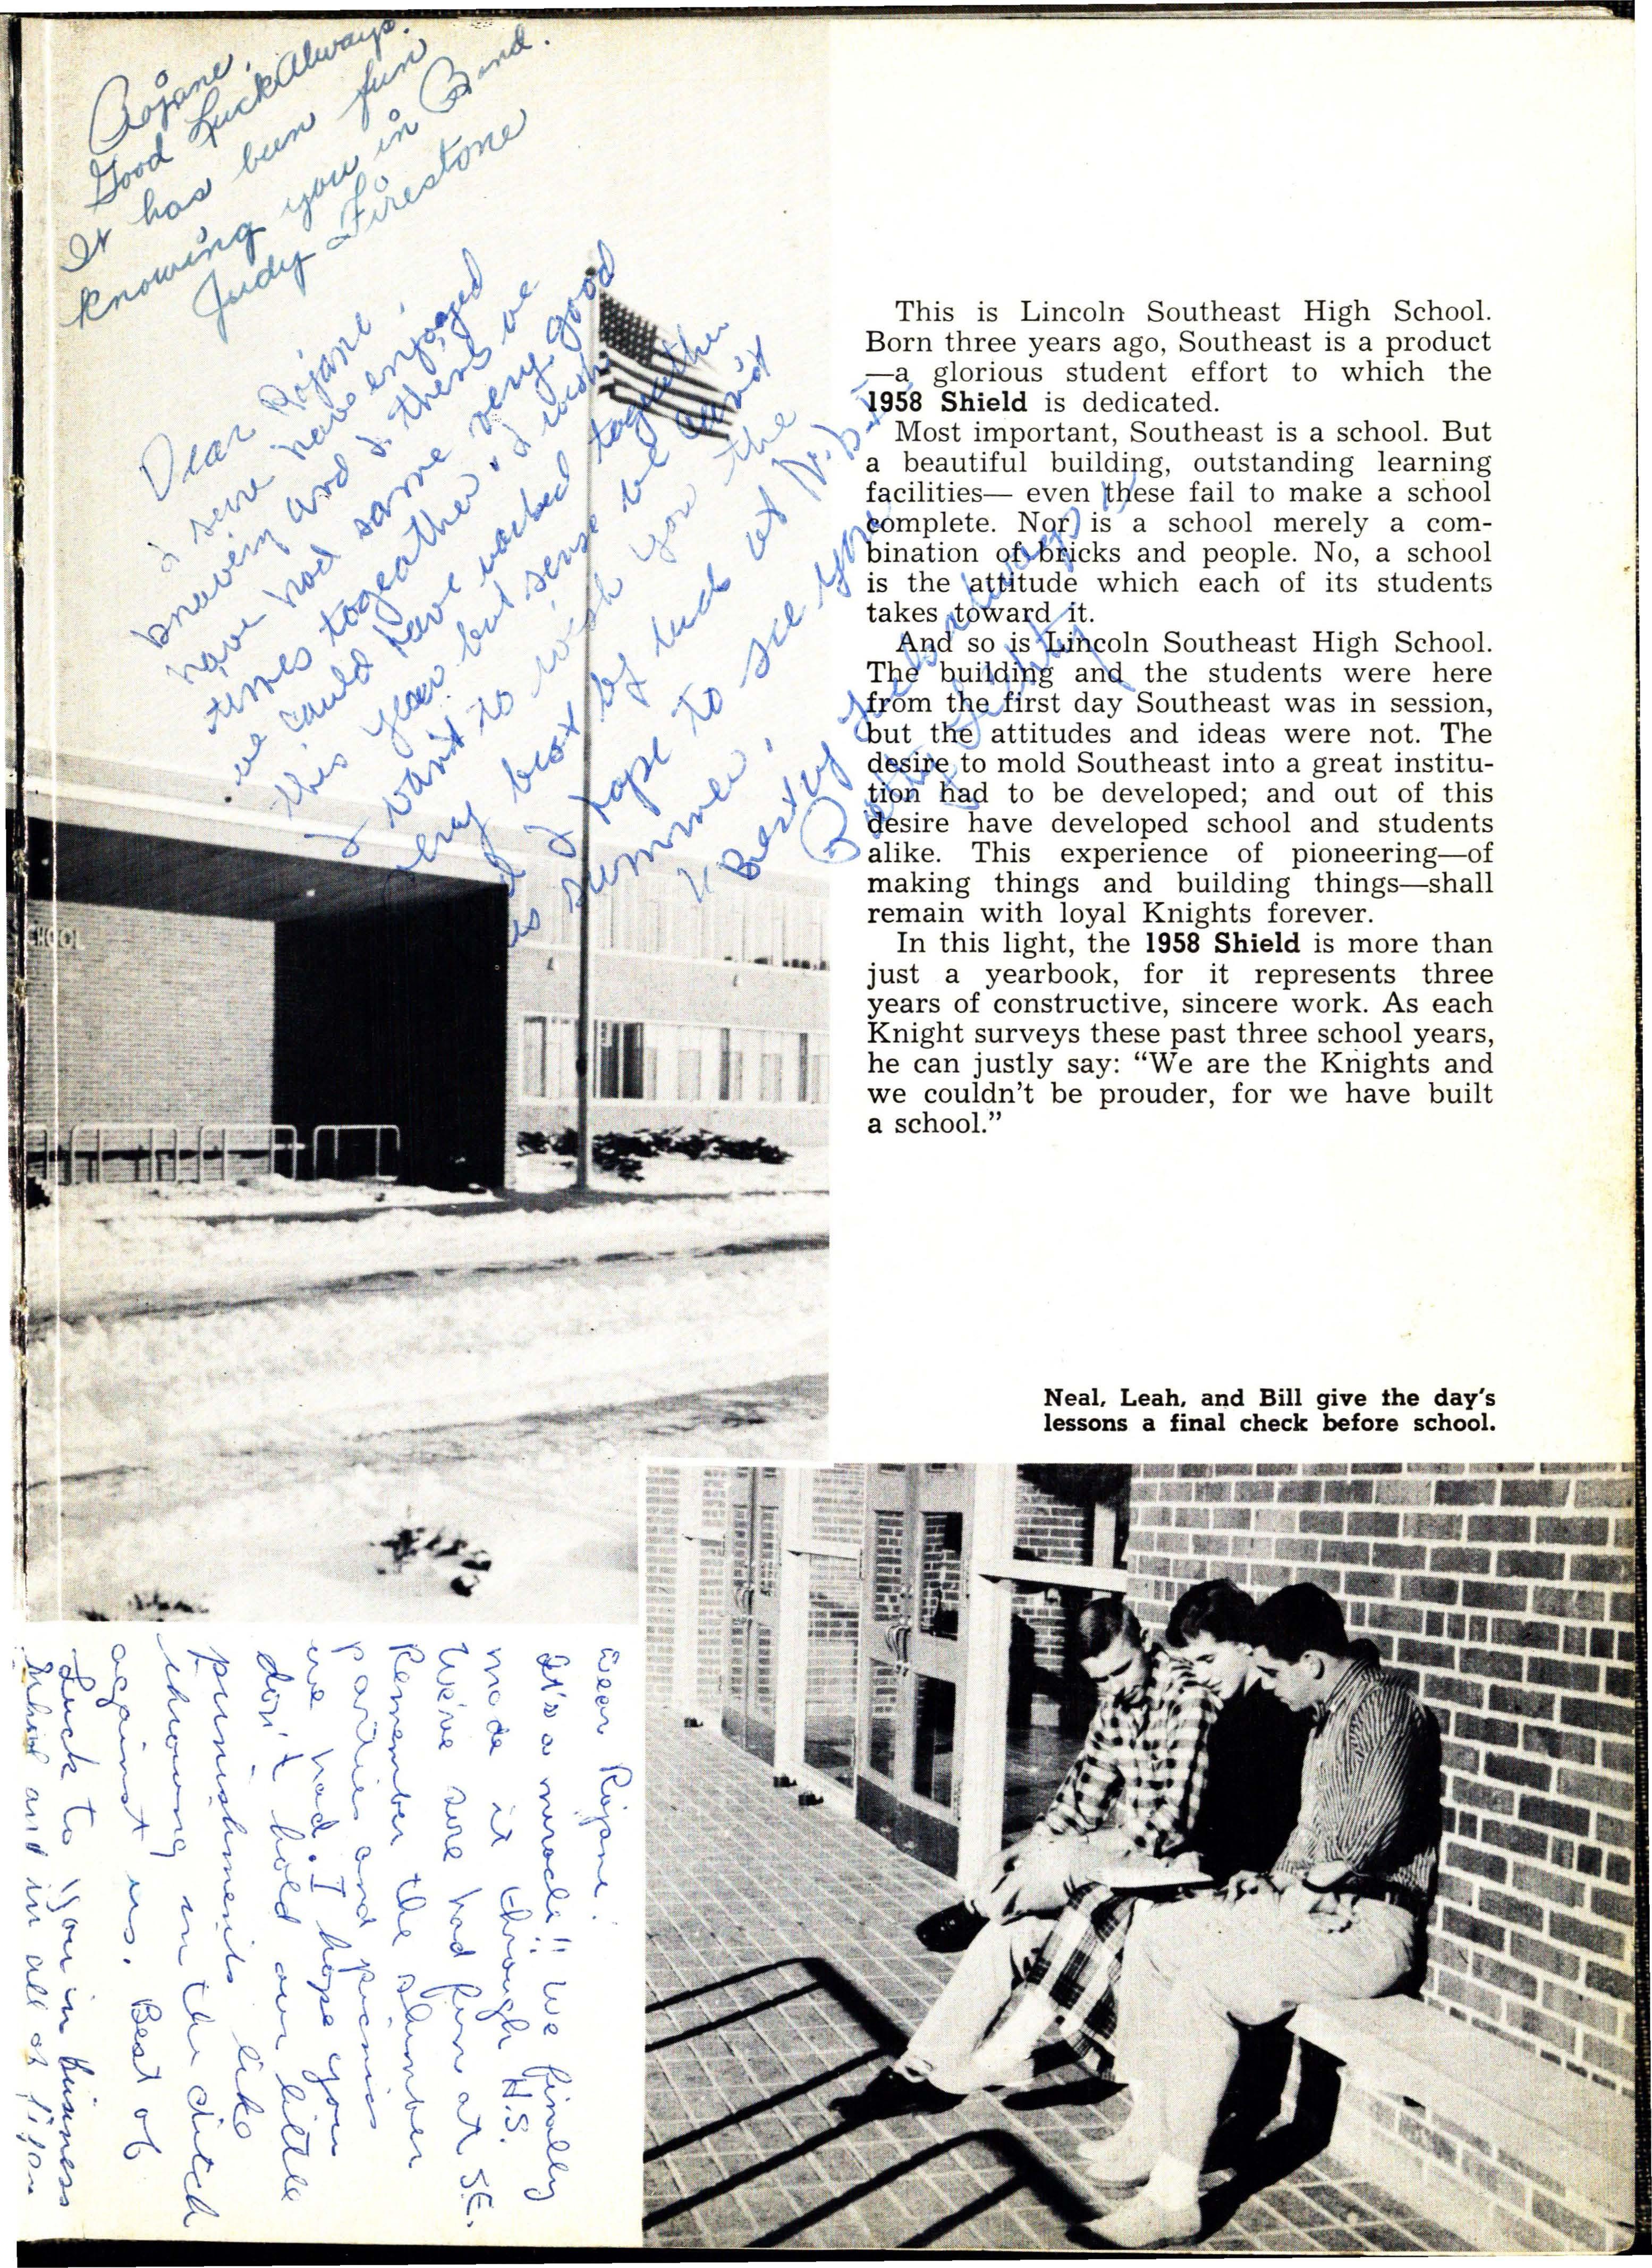 Rojane,
Good Luck Always.
It has been fun
knowing you in Band.
Judy Firestone
Dear Rojane,
I sure have enjoyed
knowing and I there we
have had some very good
times togeather. I wish
we could have worked togeather
this year but sense we can't
I want to wish you the
very best of luck at
I hope to see you
summer.
Best of luck always
Betty
CHOOL
This is Lincoln Southeast High School.
Born three years ago, Southeast is a product
—a glorious student effort to which the
1958 Shield is dedicated.
Most important, Southeast is a school. But
a beautiful building, outstanding learning
facilities— even these fail to make a school
complete. Nor is a school merely a com-
bination of bricks and people. No, a school
is the attitude which each of its students
takes toward it.
And so is Lincoln Southeast High School.
The building and the students were here
from the first day Southeast was in session,
but the attitudes and ideas were not. The
desire to mold Southeast into a great institu-
tion had to be developed; and out of this
desire have developed school and students
alike. This experience of pioneering—of
making things and building things—shall
remain with loyal Knights forever.
In this light, the 1958 Shield is more than
just a yearbook, for it represents three
years of constructive, sincere work. As each
Knight surveys these past three school years,
he can justly say: “We are the Knights and
we couldn't be prouder, for we have built
a school.”
Neal, Leah, and Bill give the day's
lessons a final check before school.
Dear Rojane,
It's a miracle!! We finally
made it through H.S.
We've sure had fun at S.E.
Remember the slumber
parties and picnics
we had. I hope you
don't hold our little
punishments like
throwing in the ditch
against us. Best of
Luck to you in business
School and in all of